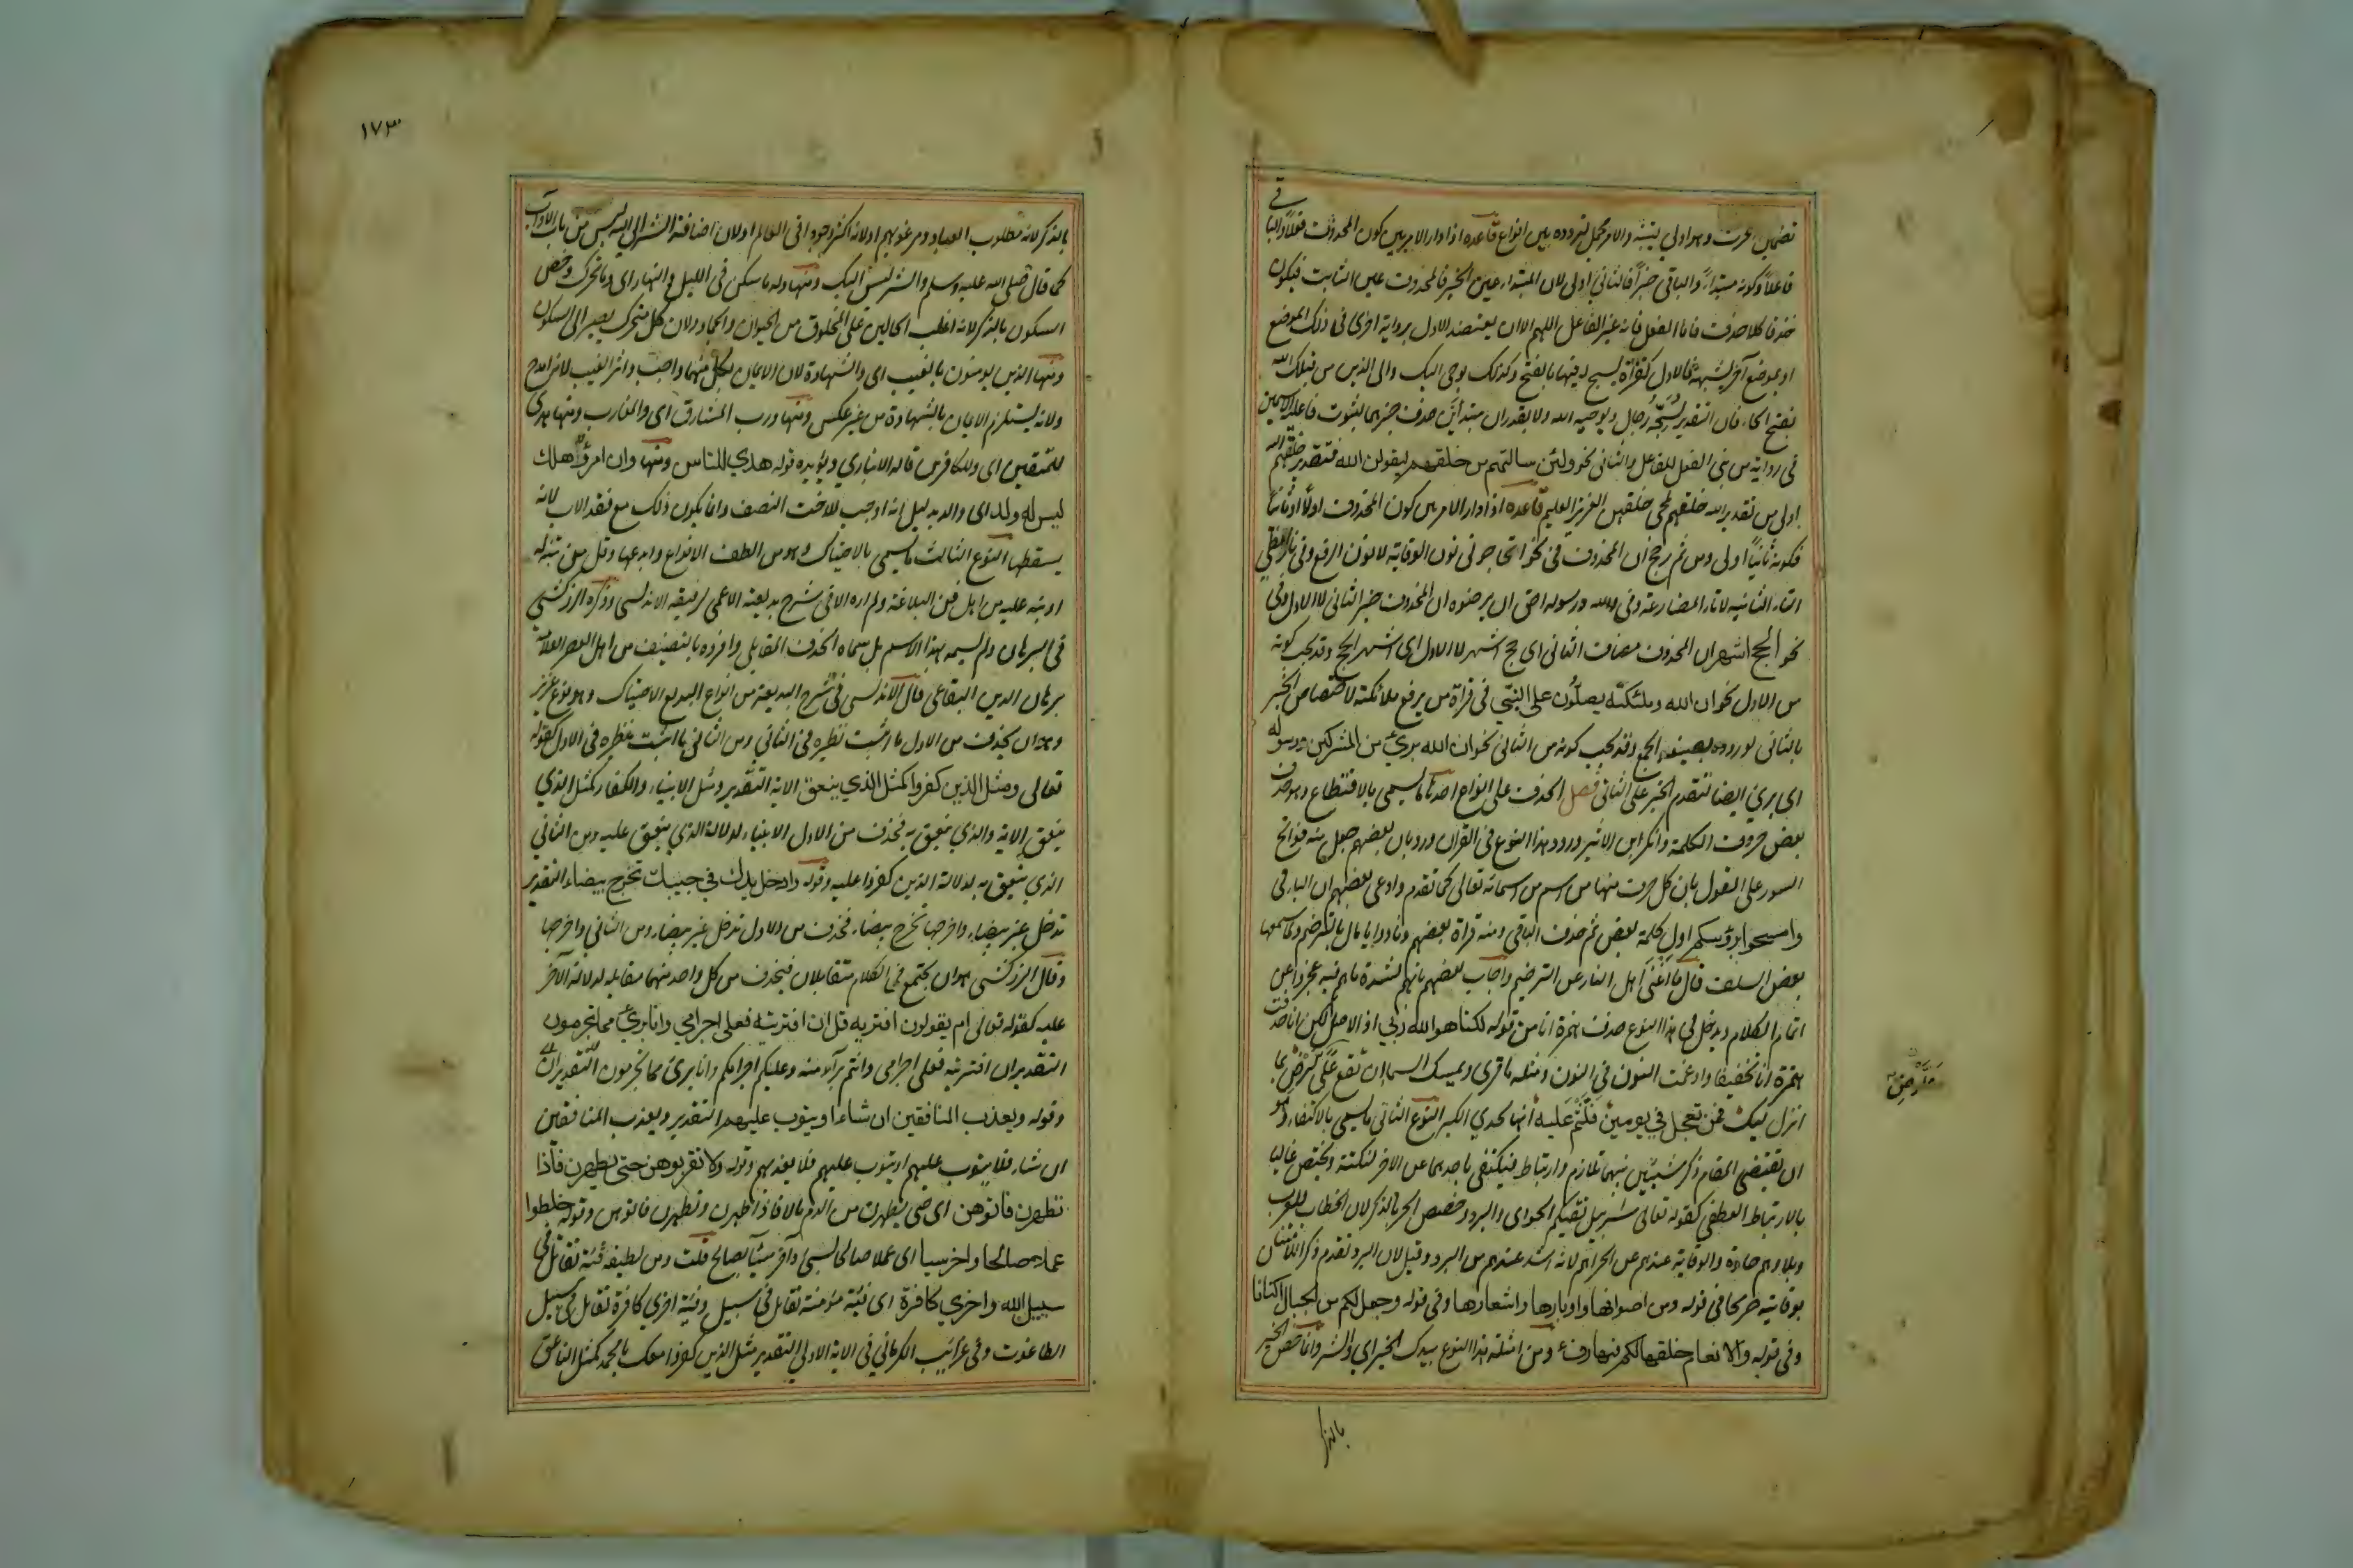 تضمين حرف وهو اولى ينبه والامر محمل لتردده بين انواع قاعده اذا دار الامر بين كون المحذوف فعلا والباقي
فاعلا وكونه مبتداء والباقي خبرا فالثاني اولى لان المبتداء عين الخبر فالمحذوف عين الثابت فيكون
حذفا كلا حذف فاما الفعل فانه غير الفاعل اللهم الا ان يعتضد الاول برواية اخرى في ذلك الموضع
او بموضع آخر يشبهه فالاول كقراة يسبح له فيها بالفتح وكذلك يوحى اليك والى الذين من قبلك الله
بفتح الحاء فان التقدير يسبحه رجال ويوحيه الله ولا يقدران مبتدأين حذف خبرهما لثبوت فاعلية الاسمين
في رواية من بنى الفعل للفاعل والثاني نحو ولئن سالتهم من خلقهم ليقولن الله فتقدير خلقهم الله
اولى من تقدير الله خلقهم لمجى خلقهن العزيز العليم قاعده اذا دار الامر بين كون المحذوف اولا او ثانيا
فكونه ثانيا اولى ومن ثم رجح ان المحذوف في نحو اتحاجوني نون الوقاية لا نون الرفع وفي نارا تلظى
التاء الثانية لا تاء المضارعة وفي والله ورسوله احق ان يرضوه ان المحذوف خبر الثاني لا الاول وفي
نحو الحج اشهر ان المحذوف مضاف الثاني اى حج اشهر لا الاول اى اشهر الحج وقد يجب كونه
من الاول نحو ان الله وملئكته يصلون على النبي في قراة من يرفع ملائكته لاختصاص الخبر
بالثاني لوروده بصيغة الجمع وقد يجب كونه من الثاني نحو ان الله برئ من المشركين ورسوله
اى برئ ايضا لتقدم الخبر على الثاني فصل الحذف على انواع احدها ما يسمى بالاقتطاع وهو حذف
بعض حروف الكلمة وانكر ابن الاثير ورود هذا النوع في القران ورد بان بعضهم جعل منه فواتح
السور على القول بان كل حرف منها من اسم من اسمائه تعالى كما تقدم وادعى بعضهم ان الباء في
وامسحوا برؤسكم اول كلمة بعض ثم حذف الباقي ومنه قراة بعضهم ونادوا يا مال بالترخيم ولما سمعها
بعض السلف قال ما اغنى اهل النار عن الترخيم واجاب بعضهم بانهم لشدة ما هم فيه عجزوا عن
اتمام الكلام ويدخل في هذا النوع حذف همزة انا من قوله لكنا هو الله ربي اذ الاصل لكن انا حذفت
همزة انا تخفيفا وادغمت النون في النون ومثله ما قرى ويمسك السماء ان تقع علرض بما
انزل ليك فمن تعجل في يومين فلثم عليه انها لحدي الكبر النوع الثاني ما يسمى بالاكتفاء وهو
ان يقتضي المقام ذكر شيئين بينهما تلازم وارتباط فيكتفى باحدهما عن الاخر لنكتة ويختص غالبا
بالارتباط العطفي كقوله تعالى سرابيل تقيكم الحر اى والبرد وخصص الحر بالذكر لان الخطاب للعرب
وبلادهم حارة والوقاية عندهم من الحر اهم لانه اشد عندهم من البرد وقيل لان البرد تقدم ذكر الامتنان
بوقايته صريحا في قوله ومن اصوافها واوبارها واشعارها وفي قوله وجعل لكم من الجبال اكنانا
وفي قوله والانعام خلقها لكم فيها دفء ومن امثلة هذا النوع بيدك الخير اى والشر وانما خص الخير
بالذكر
علرض
١٧٣
بالذكر لانه مطلوب العباد ومرغوبهم او لانه اكثر وجودا في العالم او لان اضافة الشر الى الله ليس من باب الاداب
كما قال صلى الله عليه وسلم والشر ليس اليك ومنها وله ما سكن في الليل والنهار اى وما تحرك وخص
السكون بالذكر لانه اغلب الحالين على المخلوق من الحيوان والجماد ولان كل متحرك يصير الى السكون
ومنها الذين يومنون بالغيب اى والشهادة لان الايمان بكل منهما واجب واثر الغيب لانه امدح
ولانه يستلزم الايمان بالشهادة من غير عكس ومنها ورب المشارق اى والمغارب ومنها هدى
للمتقين اى وللكافرين قاله الانباري ويؤيده قوله هدي للناس ومنها وان امرؤ هلك
ليس له ولد اى والد بدليل انه اوجب للاخت النصف وانما يكون ذلك مع فقد الاب لانه
يسقطها النوع الثالث ما يسمى بالاحتباك وهو من الطف الانواع وابدعها وقل من تنبه له
او نبه عليه من اهل فن البلاغة ولم اره الا في شرح بديعية الاعمى لرفيقه الاندلسي وذكره الزركشي
في البرهان ولم يسمه هذا الاسم بل سماه الحذف المقابلي وافرده بالتصنيف من اهل العصر العلامة
برهان الدين البقاعي قال الاندلسي في شرح البديعية من انواع البديع الاحتباك وهو نوع عزيز
وهو ان يحذف من الاول ما اثبت نظيره في الثاني ومن الثاني ما اثبت نظيره في الاول كقوله
تعالى ومثل الذين كفروا كمثل الذي ينعق الاية التقدير ومثل الانبياء والكفار كمثل الذي
ينعق الاية والذي ينعق به فحذف من الاول الانبياء لدلالة الذي ينعق عليه ومن الثاني
الذي ينعق به لدلالة الذين كفروا عليه وقوله وادخل يدك في جيبك تخرج بيضاء التقدير
تدخل غير بيضاء واخرجها تخرج بيضاء فحذف من الاول تدخل غير بيضاء ومن الثاني واخرجها
وقال الزركشي هو ان يجتمع في الكلام متقابلان فيحذف من كل واحد منهما مقابله لدلالة الآخر
عليه كقوله تعالى ام يقولون افتريه قل ان افتريته فعلى اجرامي وانا برئ مما تجرمون
التقدير ان افتريته فعلى اجرامى وانتم برآء منه وعليكم اجرامكم وانا برئ مما تجرمون
وقوله ويعذب المنافقين ان شاء او يتوب عليهم التقدير ويعذب المنافقين
ان شاء فلا يتوب عليهم او يتوب عليهم فلا يعذبهم وقوله ولا تقربوهن حتى يطهرن فاذا
تطهرن فاتوهن اى حتى يطهرن من الدم بالماء فاذا طهرن وتطهرن فاتوهن وقوله خلطوا
عملا صالحا واخر سيا اى عملا صالحا بسيئ وآخر سيئا بصالح قلت ومن لطيفه فئة تقاتل في
سبيل الله واخري كافرة اى فئة مؤمنة تقاتل في سبيل وفئة اخرى كافرة تقاتل في سبيل
الطاغوت وفي غرائب الكرماني في الاية الاولى التقدير مثل الذين كفروا معك يا محمد كمثل الناعق